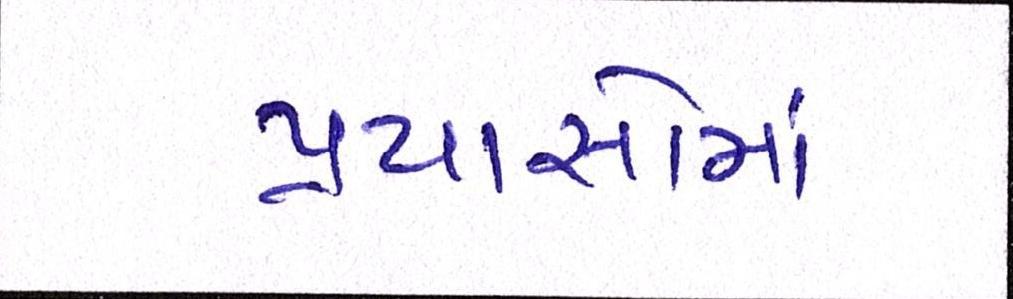 પ્રયાસોમાં